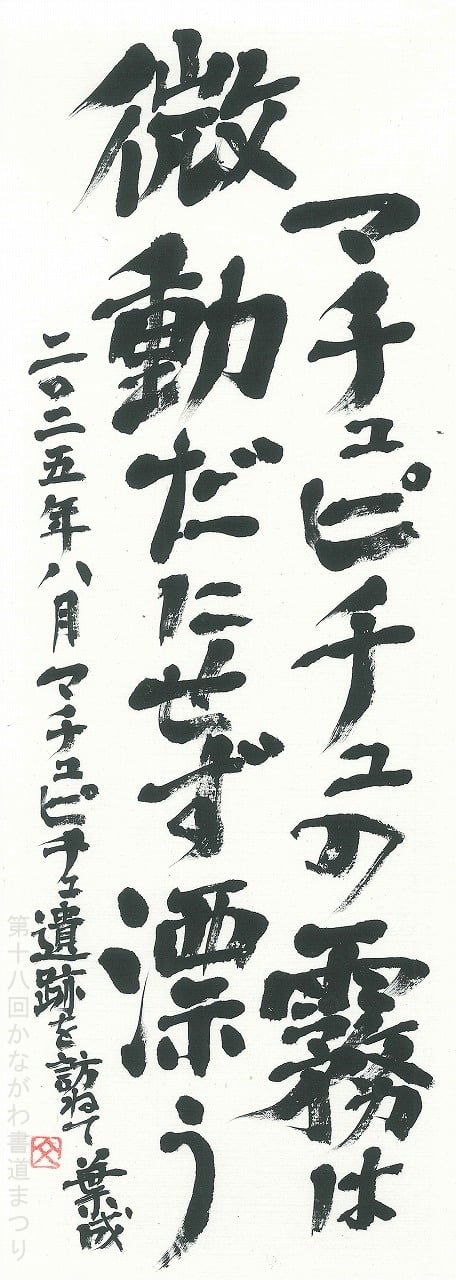 マチュピチュの霧は
微動だにせず漂う
二〇二五年八月マチュピチュ遺跡を訪ねて 葉成
第十八回かながわ書道まつり